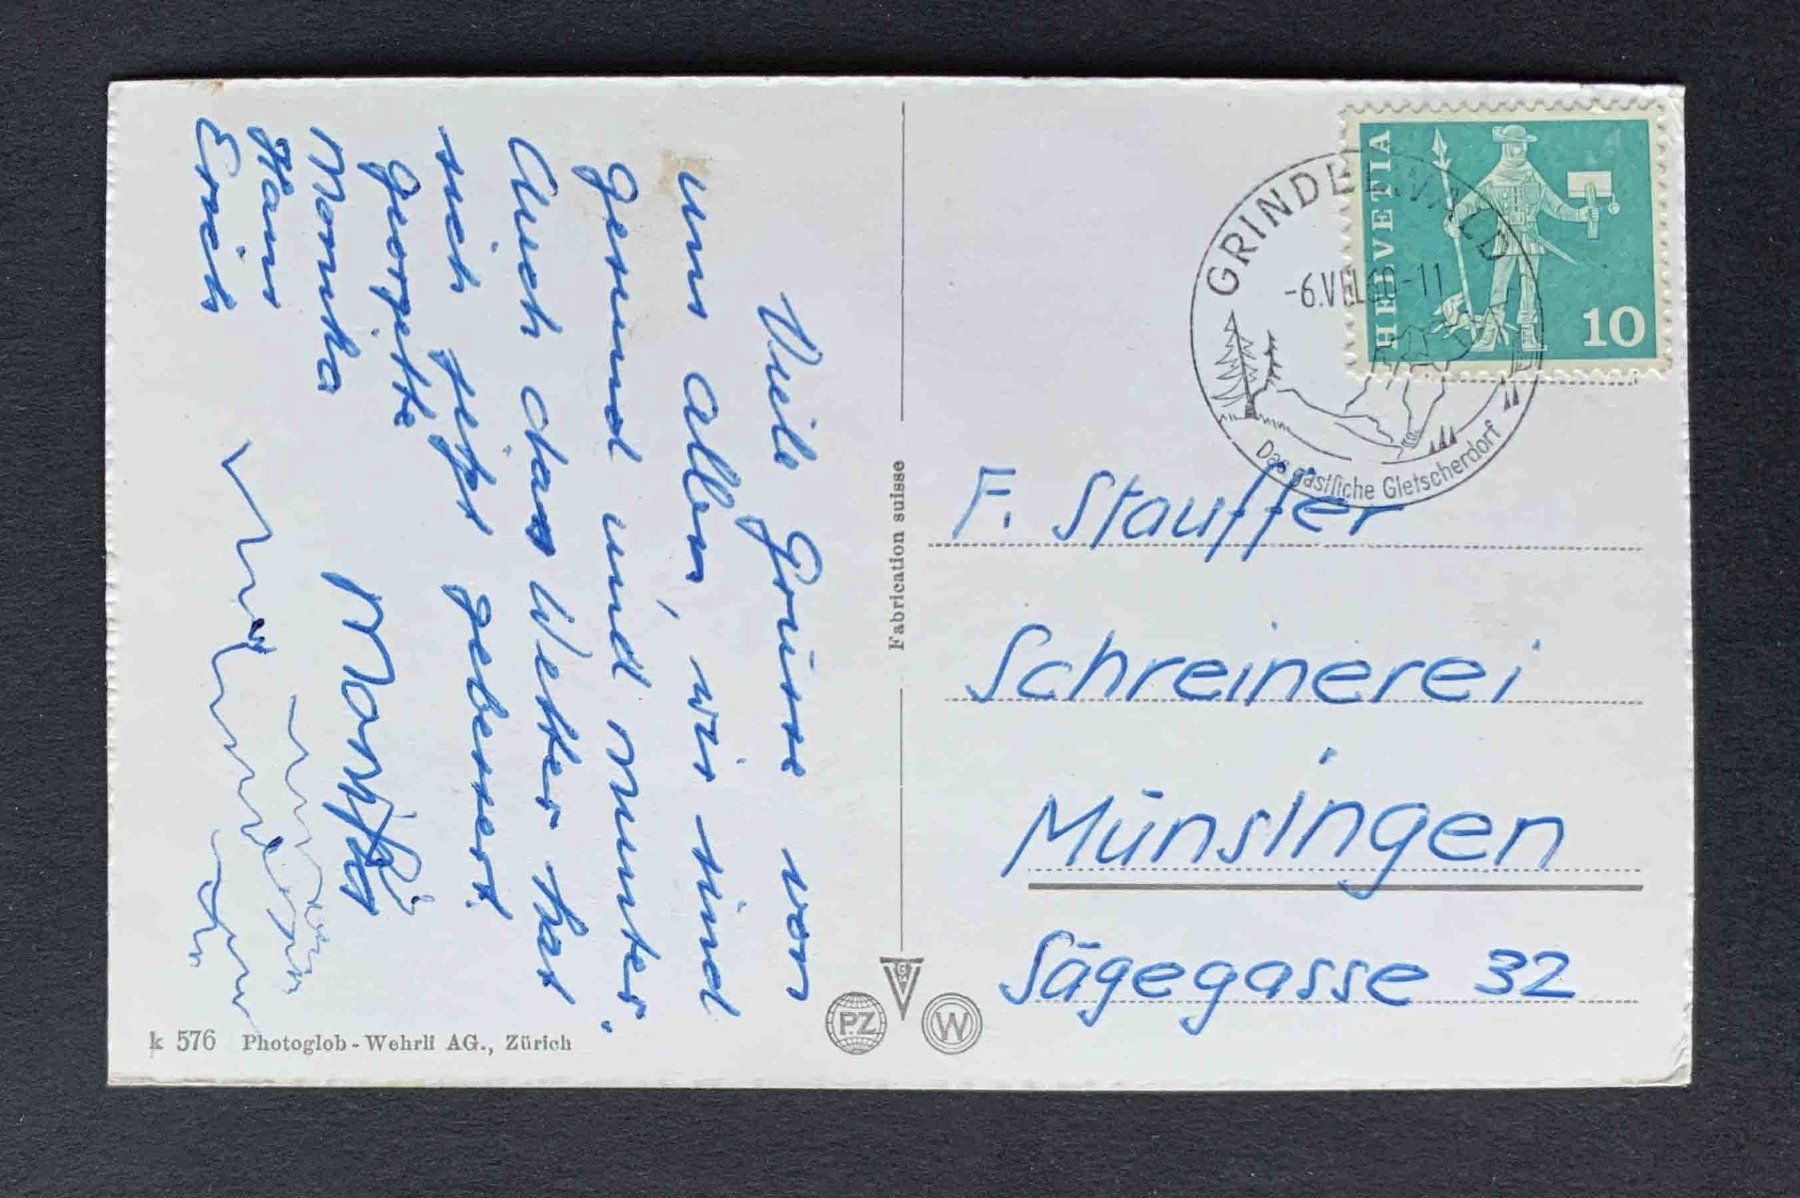 Viele Grüsse von
uns allen, wir sind
gesund und munter.
Auch das Wetter hat
sich jetzt gebessert.
Georgette
Monika
Hans
Erich
Fabrication suisse
k 576 Photoglob-Wehrli AG., Zürich
PZ
W
HELVETIA
10
GRINDELWALD
-11
Das gastliche Gletscherdorf
F. Stauffer
Schreinerei
Münsingen
Sägegasse 32